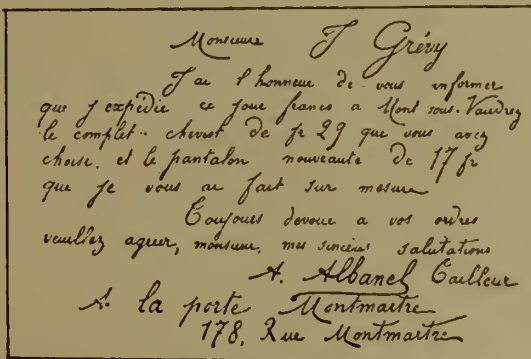 Monsieur J Grévy
J'ai l'honneur de vous informer
que j'expédie ce jour franco a Mont sous-Vaudrez
le complet-cheviot de fr 29 que vous avez
choisi, et le pantalon nouveauté de 17 fr
que je vous ai fait sur mesure
Toujours dévoué a vos ordres
veuillez agréer, monsieur, mes sincères salutations
A. Albanel Tailleur
A la porte Montmartre
178, Rue Montmartre